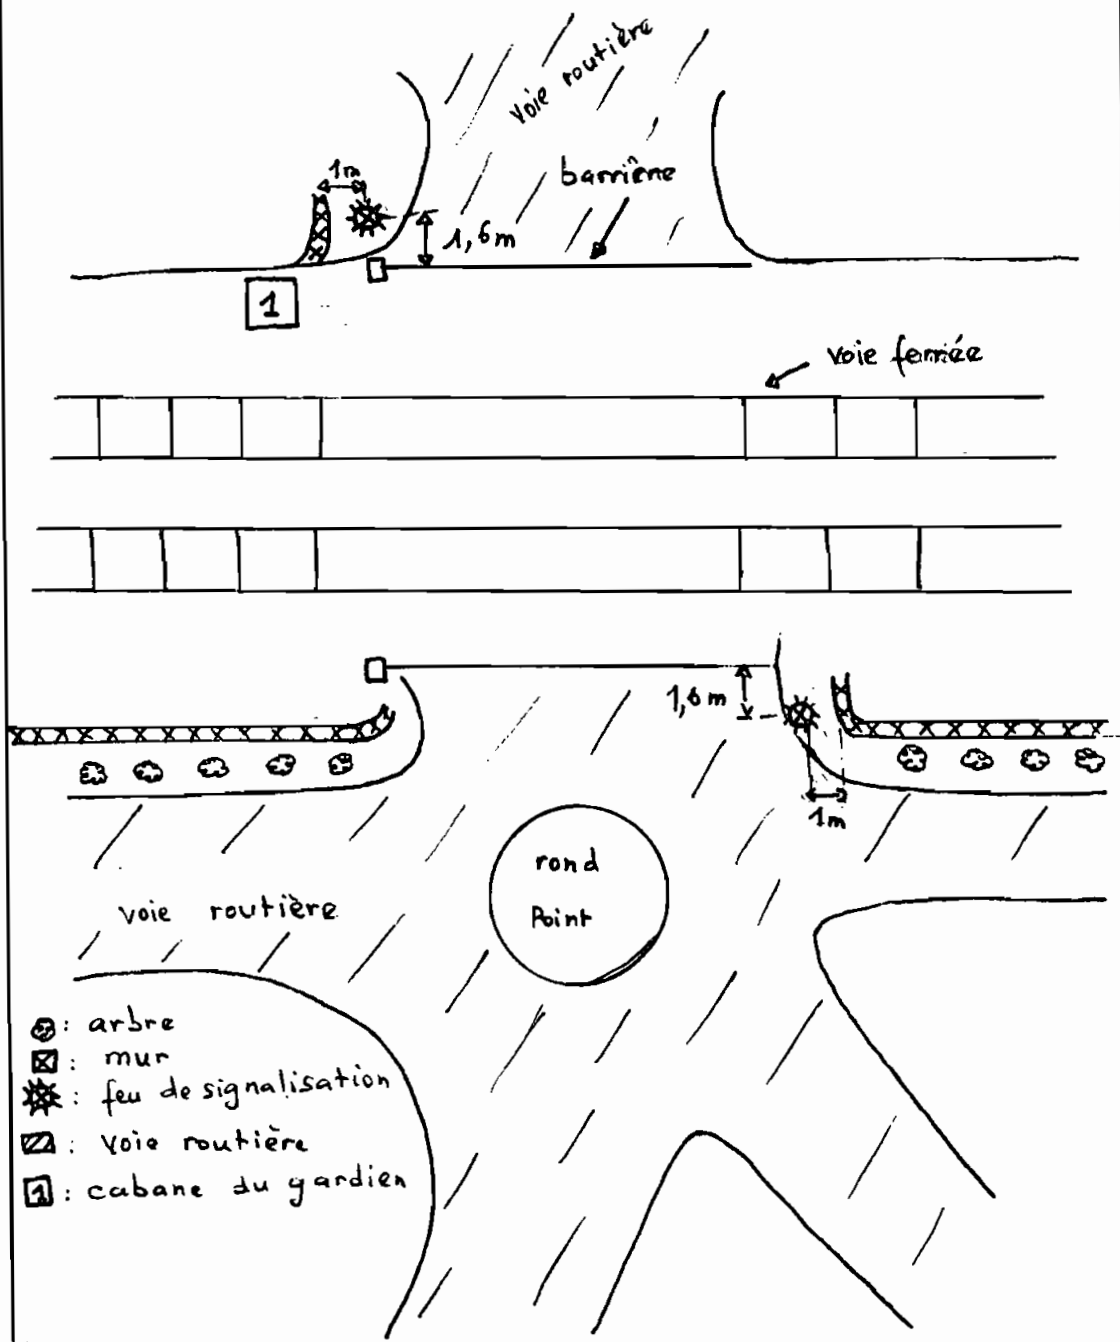 voie routière
1m
barrière
1,6m
1
voie ferrée
1,6m
1m
rond
Point
voie routière
: arbre
: mur
: feu de signalisation
: voie routière
1 : cabane du gardien